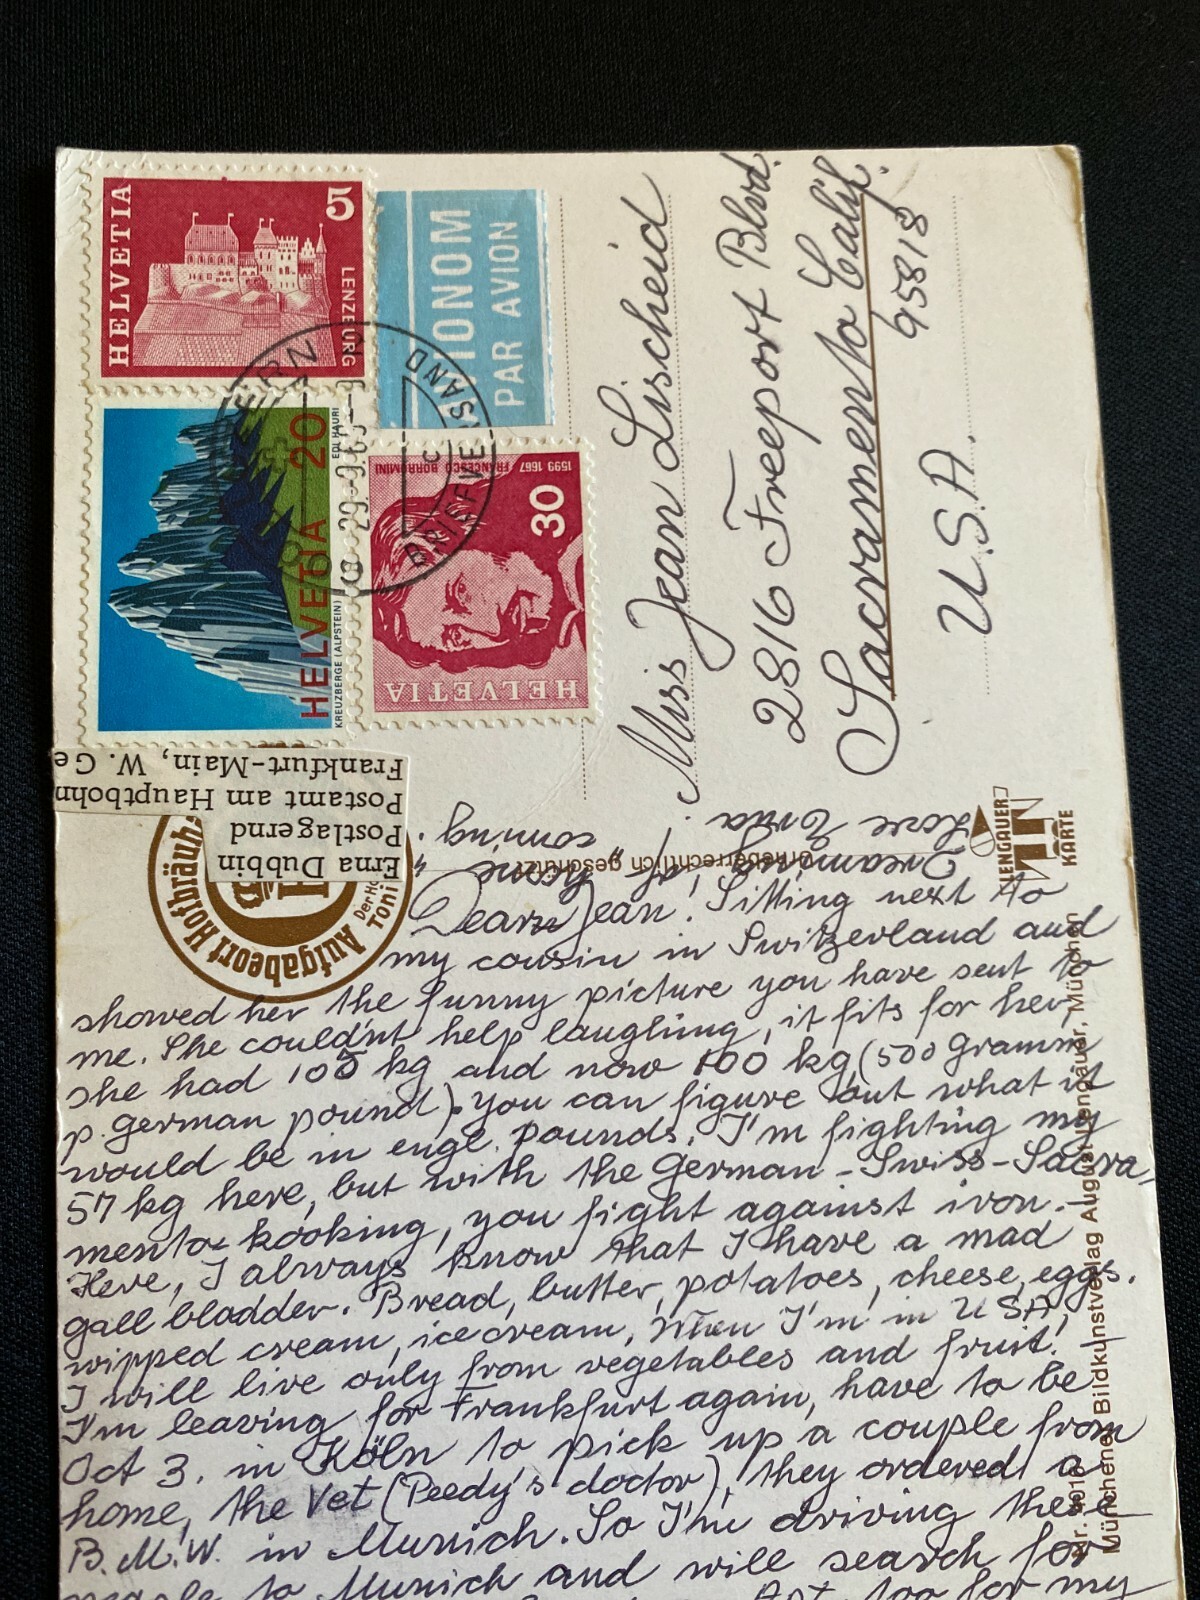 HELVETIA
5
LENZBURG
HELVETIA 20
KREUZBERGE (ALPSTEIN)
EDI HAURI
HELVETIA
30
FRANCESCO BORROMINI
1599 1667
PAR AVION
BRIEFVERSAND
29.-9.69.-9
Miss Jean Lischeid
2816 Freeport Blvd.
Sacramento Calif.
95818
U.S.A.
Erna Dubbin
Postlagernd
Postamt am Hauptbohn
Frankfurt-Main, W. Ge
Aufgabeort Hofbräuh
Der Ho
Toni
LENGAUER
KARTE
Urheberrechtlich geschützt
Münchener Bildkunstverlag August Lengauer, München
Dear Jean! Sitting next to
my cousin in Switzerland and
showed her the funny picture you have sent to
me. She couldn't help laughing, it fits for her,
she had 105 kg and now 100 kg (500 gramm
p. german pound). you can figure out what it
would be in engl. pounds. I'm fighting my
57 kg here, but with the German-Swiss-Sacra,
mento kooking, you fight against iron.-
Here, I always know that I have a mad
gall bladder. Bread, butter, potatoes, cheese, eggs.
wipped cream, icecream, When I'm in USA,
I will live only from vegetables and fruit!
I'm leaving for Frankfurt again, have to be
Oct 3. in Köln to pick up a couple from
home, the Vet (Peedy's doctor), they ordered a
B.M.W. in Munich. So I'm driving these
people to Munich and will search for
Apt. too for my
Dreaming of "home
coming".
Love Erna